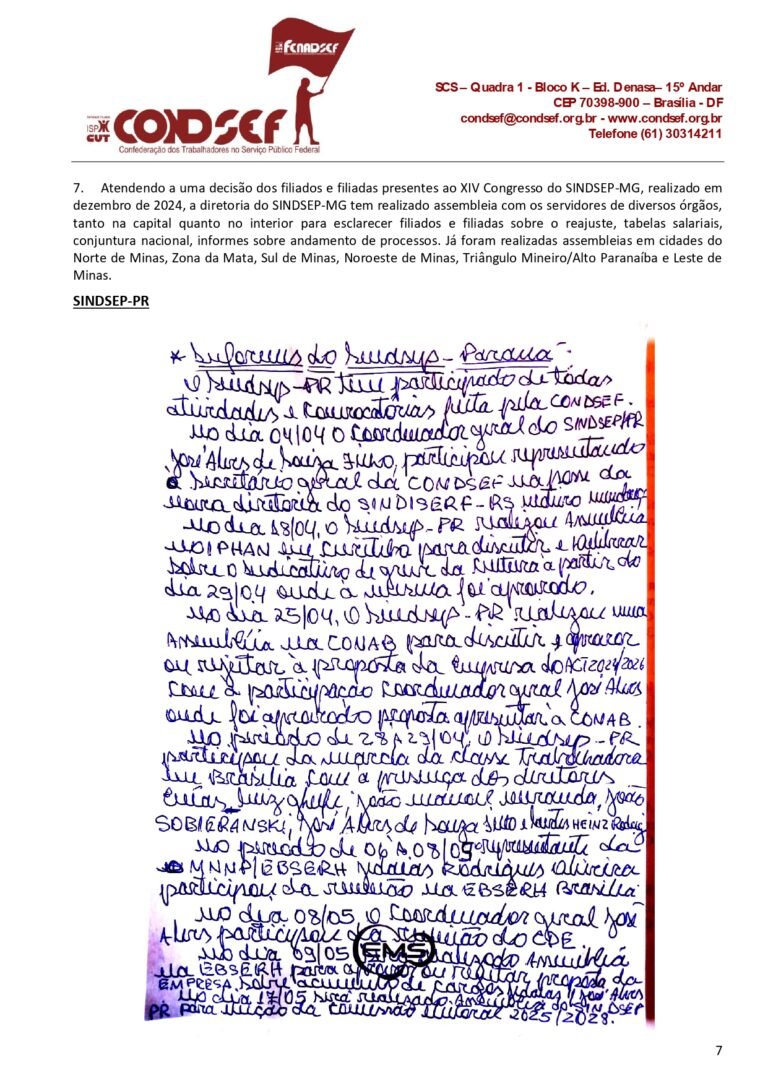 FENADSEF
ISP CUT CONDSEF
Confederação dos Trabalhadores no Serviço Público Federal
SCS – Quadra 1 - Bloco K – Ed. Denasa– 15º Andar
CEP 70398-900 – Brasília - DF
condsef@condsef.org.br - www.condsef.org.br
Telefone (61) 30314211
7. Atendendo a uma decisão dos filiados e filiadas presentes ao XIV Congresso do SINDSEP-MG, realizado em
dezembro de 2024, a diretoria do SINDSEP-MG tem realizado assembleia com os servidores de diversos órgãos,
tanto na capital quanto no interior para esclarecer filiados e filiadas sobre o reajuste, tabelas salariais,
conjuntura nacional, informes sobre andamento de processos. Já foram realizadas assembleias em cidades do
Norte de Minas, Zona da Mata, Sul de Minas, Noroeste de Minas, Triângulo Mineiro/Alto Paranaíba e Leste de
Minas.
SINDSEP-PR
* Informes do Sindsep - Paraná -
O Sindsep-PR tem participado de todas
atividades e convocatórias feita pela CONDSEF.
No dia 04/04 o coordenador geral do SINDSEP/PR
José Alves de Souza Filho, participou representando
o secretário geral da CONDSEF na posse da
nova diretoria do SINDISERF-RS
No dia 18/04, o Sindsep-PR realizou Assembléia
no IPHAN em Curitiba para discutir e deliberar
sobre o indicativo de greve da cultura a partir do
dia 29/04 onde a mesma foi aprovado.
No dia 25/04, o Sindsep-PR realizou uma
Assembléia na CONAB para discutir e aprovar
ou rejeitar à proposta da empresa do ACT 2024/2026
com a participação coordenador geral José Alves
onde foi aprovado proposta apresentar à CONAB.
No período de 28 A 29/04, o Sindsep-PR
participou da marcha da classe trabalhadora
em Brasília com a presença dos diretores
Luiz João Manoel Miranda, João
SOBIERANSKI, José Alves de Souza e HEINZ
No período de 06 à 08/05 representante da
MNNP/EBSERH Rodrigues Oliveira
participou da reunião na EBSERH Brasília
No dia 08/05 o coordenador geral José
Alves participou da reunião do CDE.
No dia 09/05 realizado Assembléia
na EBSERH para aprovar ou rejeitar proposta da
EMPRESA sobre acúmulo de cargos José Alves
No dia 17/05 será realizado Assembléia do SINDSEP
PR para eleição da comissão eleitoral 2025/2028.
EMS
7